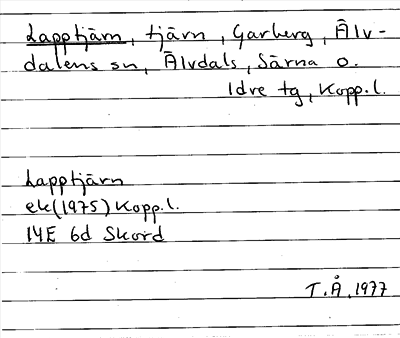 Lapptjärn, tjärn, Garberg, Älv-
dalens sn, Älvdals, Särna o.
Idre tg, Kopp.l.
Lapptjärn
ek(1975) Kopp.l.
14E 6d Skord
T.Å. 1977